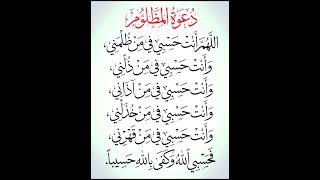 دُعَوَةُ المَظلُومِ
اللَّهُمَّ أَنْتَ حَسْبِي فِي مَنْ ظَلَمَنِي،
وَأَنْتَ حَسْبِي فِي مَنْ ذَلَّنِي،
وَأَنْتَ حَسْبِي فِي مَنْ آذَانِي،
وَأَنْتَ حَسْبِي فِي مَنْ خَذَلَنِي،
وَأَنْتَ حَسْبِي فِي مَنْ قَهَرَنِي،
فَحَسْبِي اللهُ وَكَفَى بِاللهِ حَسِيباً.